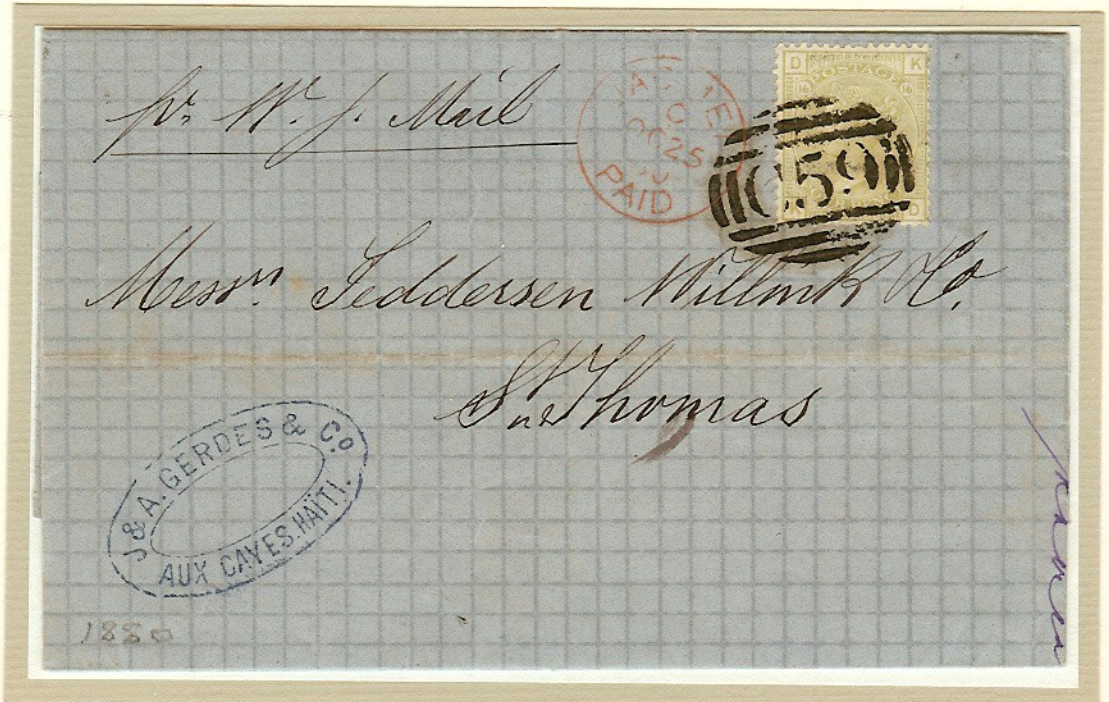 pr W. J. Mail
JACMEL
OC 25
PAID
D K
16 POSTAGE 16
C59
D
Messrs Feddersen Willink & Co.
St Thomas
J & A. GERDES & Co
AUX CAYES. HAÏTI.
1880